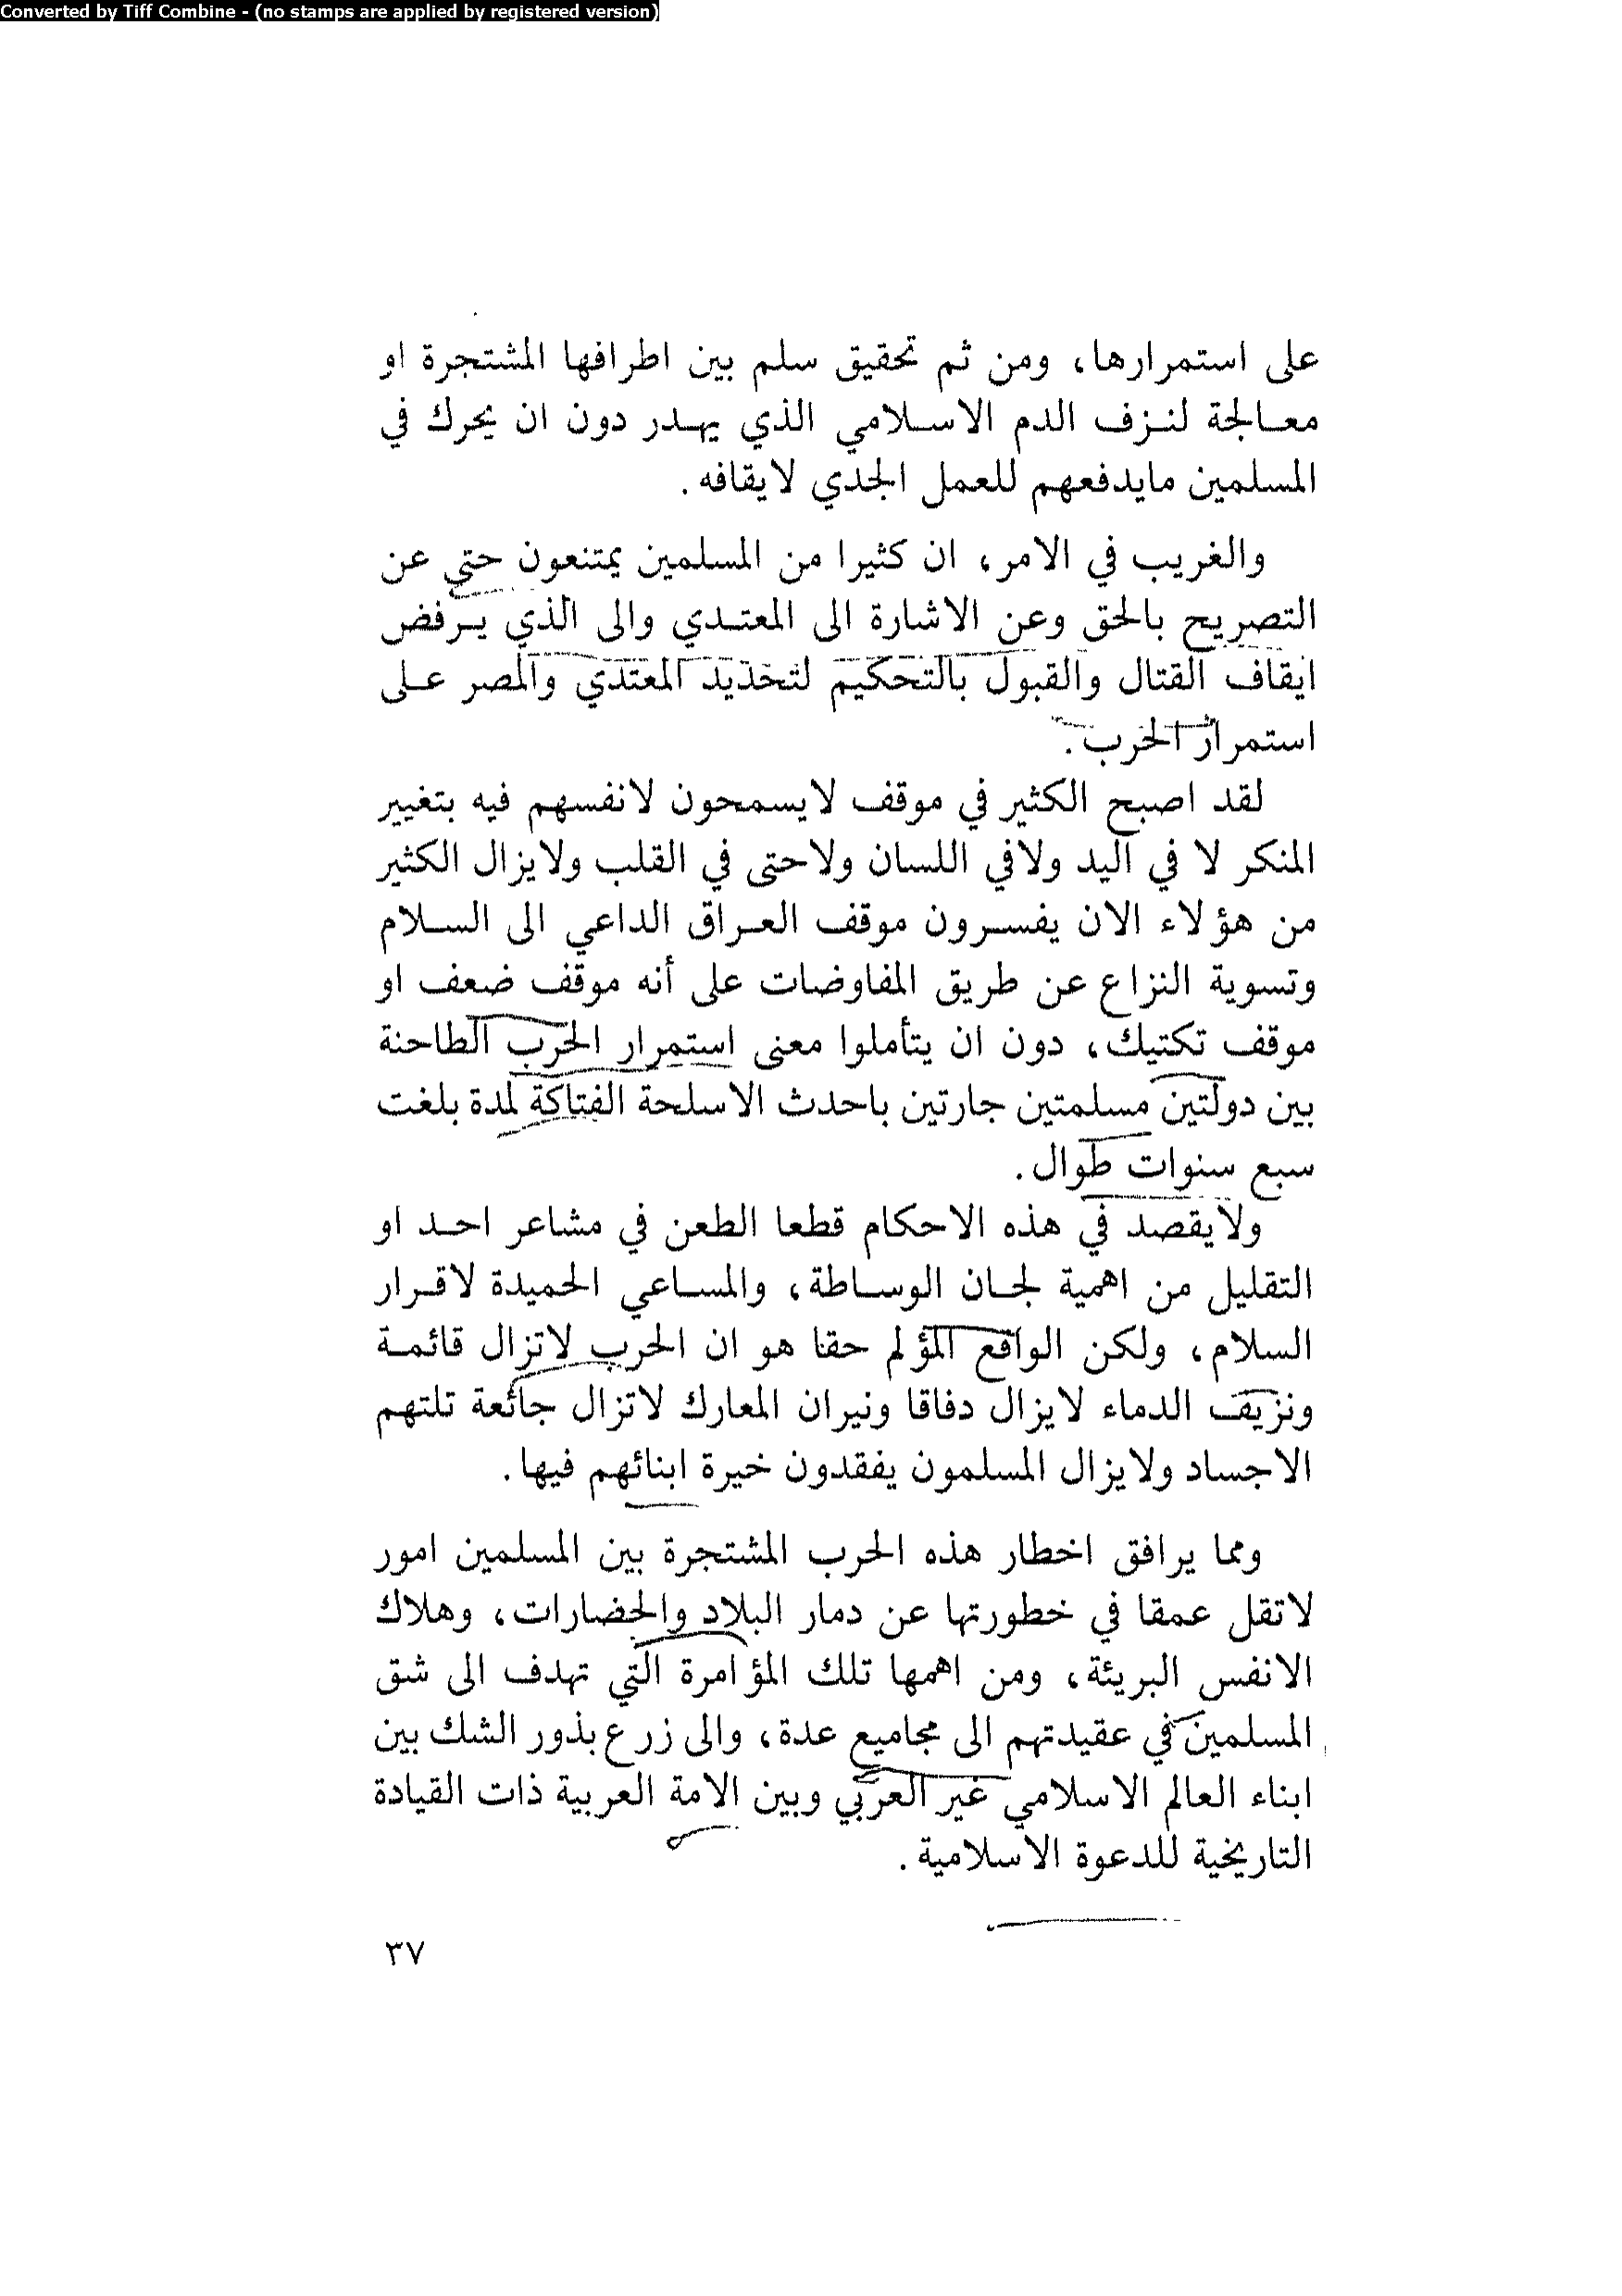 Converted by Tiff Combine - (no stamps are applied by registered version)
على استمرارها، ومن ثم تحقيق سلم بين اطرافها المشتجرة او
معالجة لنزف الدم الاسلامي الذي يهدر دون ان يحرك في
المسلمين مايدفعهم للعمل الجدي لايقافه .
والغريب في الامر، ان كثيرا من المسلمين يمتنعون حتى عن
التصريح بالحق وعن الاشارة الى المعتدي والى الذي يرفض
ايقاف القتال والقبول بالتحكيم لتحديد المعتدي والمصر على
استمرار الحرب .
لقد اصبح الكثير في موقف لايسمحون لانفسهم فيه بتغيير
المنكر لا في اليد ولافي اللسان ولاحتى في القلب ولايزال الكثير
من هؤلاء الان يفسرون موقف العراق الداعي الى السلام
وتسوية النزاع عن طريق المفاوضات على أنه موقف ضعف او
موقف تكتيك، دون ان يتأملوا معنى استمرار الحرب الطاحنة
بين دولتين مسلمتين جارتين باحدث الاسلحة الفتاكة لمدة بلغت
سبع سنوات طوال .
ولايقصد في هذه الاحكام قطعا الطعن في مشاعر احد او
التقليل من اهمية لجان الوساطة، والمساعي الحميدة لاقرار
السلام، ولكن الواقع المؤلم حقا هو ان الحرب لاتزال قائمة
ونزيف الدماء لايزال دفاقا ونيران المعارك لاتزال جائعة تلتهم
الاجساد ولايزال المسلمون يفقدون خيرة ابنائهم فيها .
ومما يرافق اخطار هذه الحرب المشتجرة بين المسلمين امور
لاتقل عمقا في خطورتها عن دمار البلاد والحضارات، وهلاك
الانفس البريئة، ومن اهمها تلك المؤامرة التي تهدف الى شق
المسلمين في عقيدتهم الى مجاميع عدة، والى زرع بذور الشك بين
ابناء العالم الاسلامي غير العربي وبين الامة العربية ذات القيادة
التاريخية للدعوة الاسلامية .
٣٧